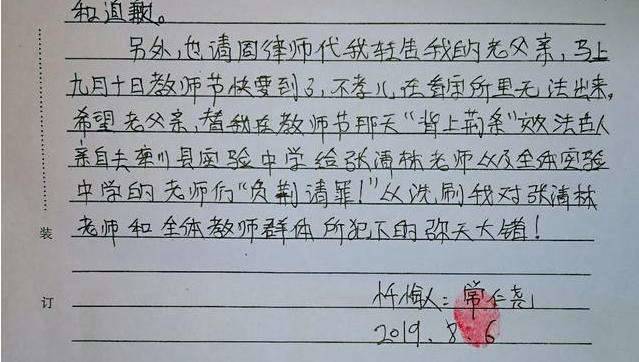 和道歉。
另外,也请周律师代我转告我的老父亲,马上
九月十日教师节快要到了,不孝儿在看守所里无法出来,
希望老父亲,替我在教师节那天“背上荆条”效法古人
亲自去栾川县实验中学给张清林老师以及全体实验
中学的老师们“负荆请罪!”以洗刷我对张清林
老师和全体教师群体所犯下的弥天大错!
装
订
忏悔人:常仁尧
2019.8.6